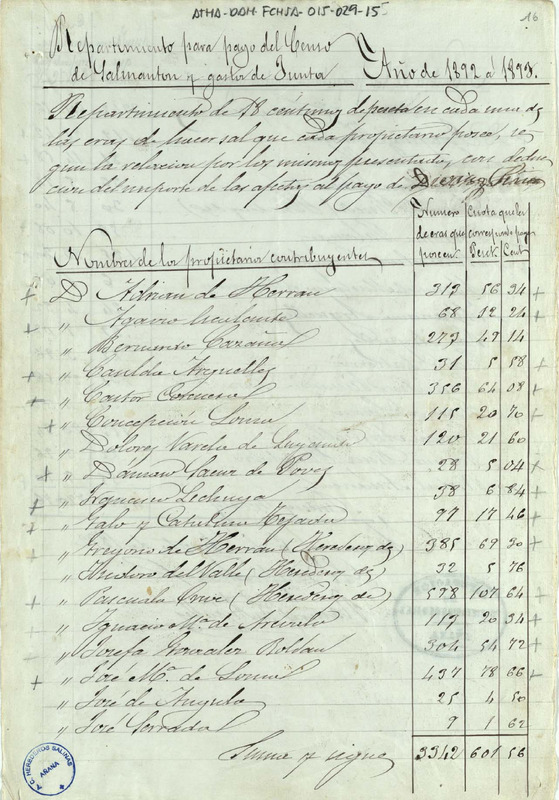 ATHA-DAH-FCHSA-015-029-15
16
Repartimiento para pago del Censo
de Salinanton y gastos de Junta
Año de 1892 a 1893.
Repartimiento de 18 centimos de peseta en cada una de
las eras de hacer sal que cada propietario posee, se
gun la relacion por los mismos presentada, con deduc
cion del importe de las afectas al pago de
Numero de eras que poseen
Cuota que les corresponde pagar
Peset. Cent.
Nombres de los propietarios contribuyentes
D Adrian de Herran 313 56 34
" 68 12 24
" Bernardo 273 49 14
" Casilda Arguelles 31 5 58
" Castor 356 64 08
" Concepción 115 20 70
" Dolores Varela de 120 21 60
" Dámaso Saenz de Poves 28 5 04
" Francisco Lechuga 38 6 84
" y Tejada 97 17 46
" Gregorio de Herran (Herederos de) 385 69 30
" Isidoro del Valle (Herederos de) 32 5 76
" Pascuala (Herederos de) 598 107 64
" Ignacio Mª de 113 20 34
" Josefa Gonzalez Roldan 304 54 72
" José Mª de 437 78 66
" José de Angulo 25 4 50
" José 9 1 62
Suma y sigue 3342 601 56
A.C. HEREDEROS SALINAS
AÑANA